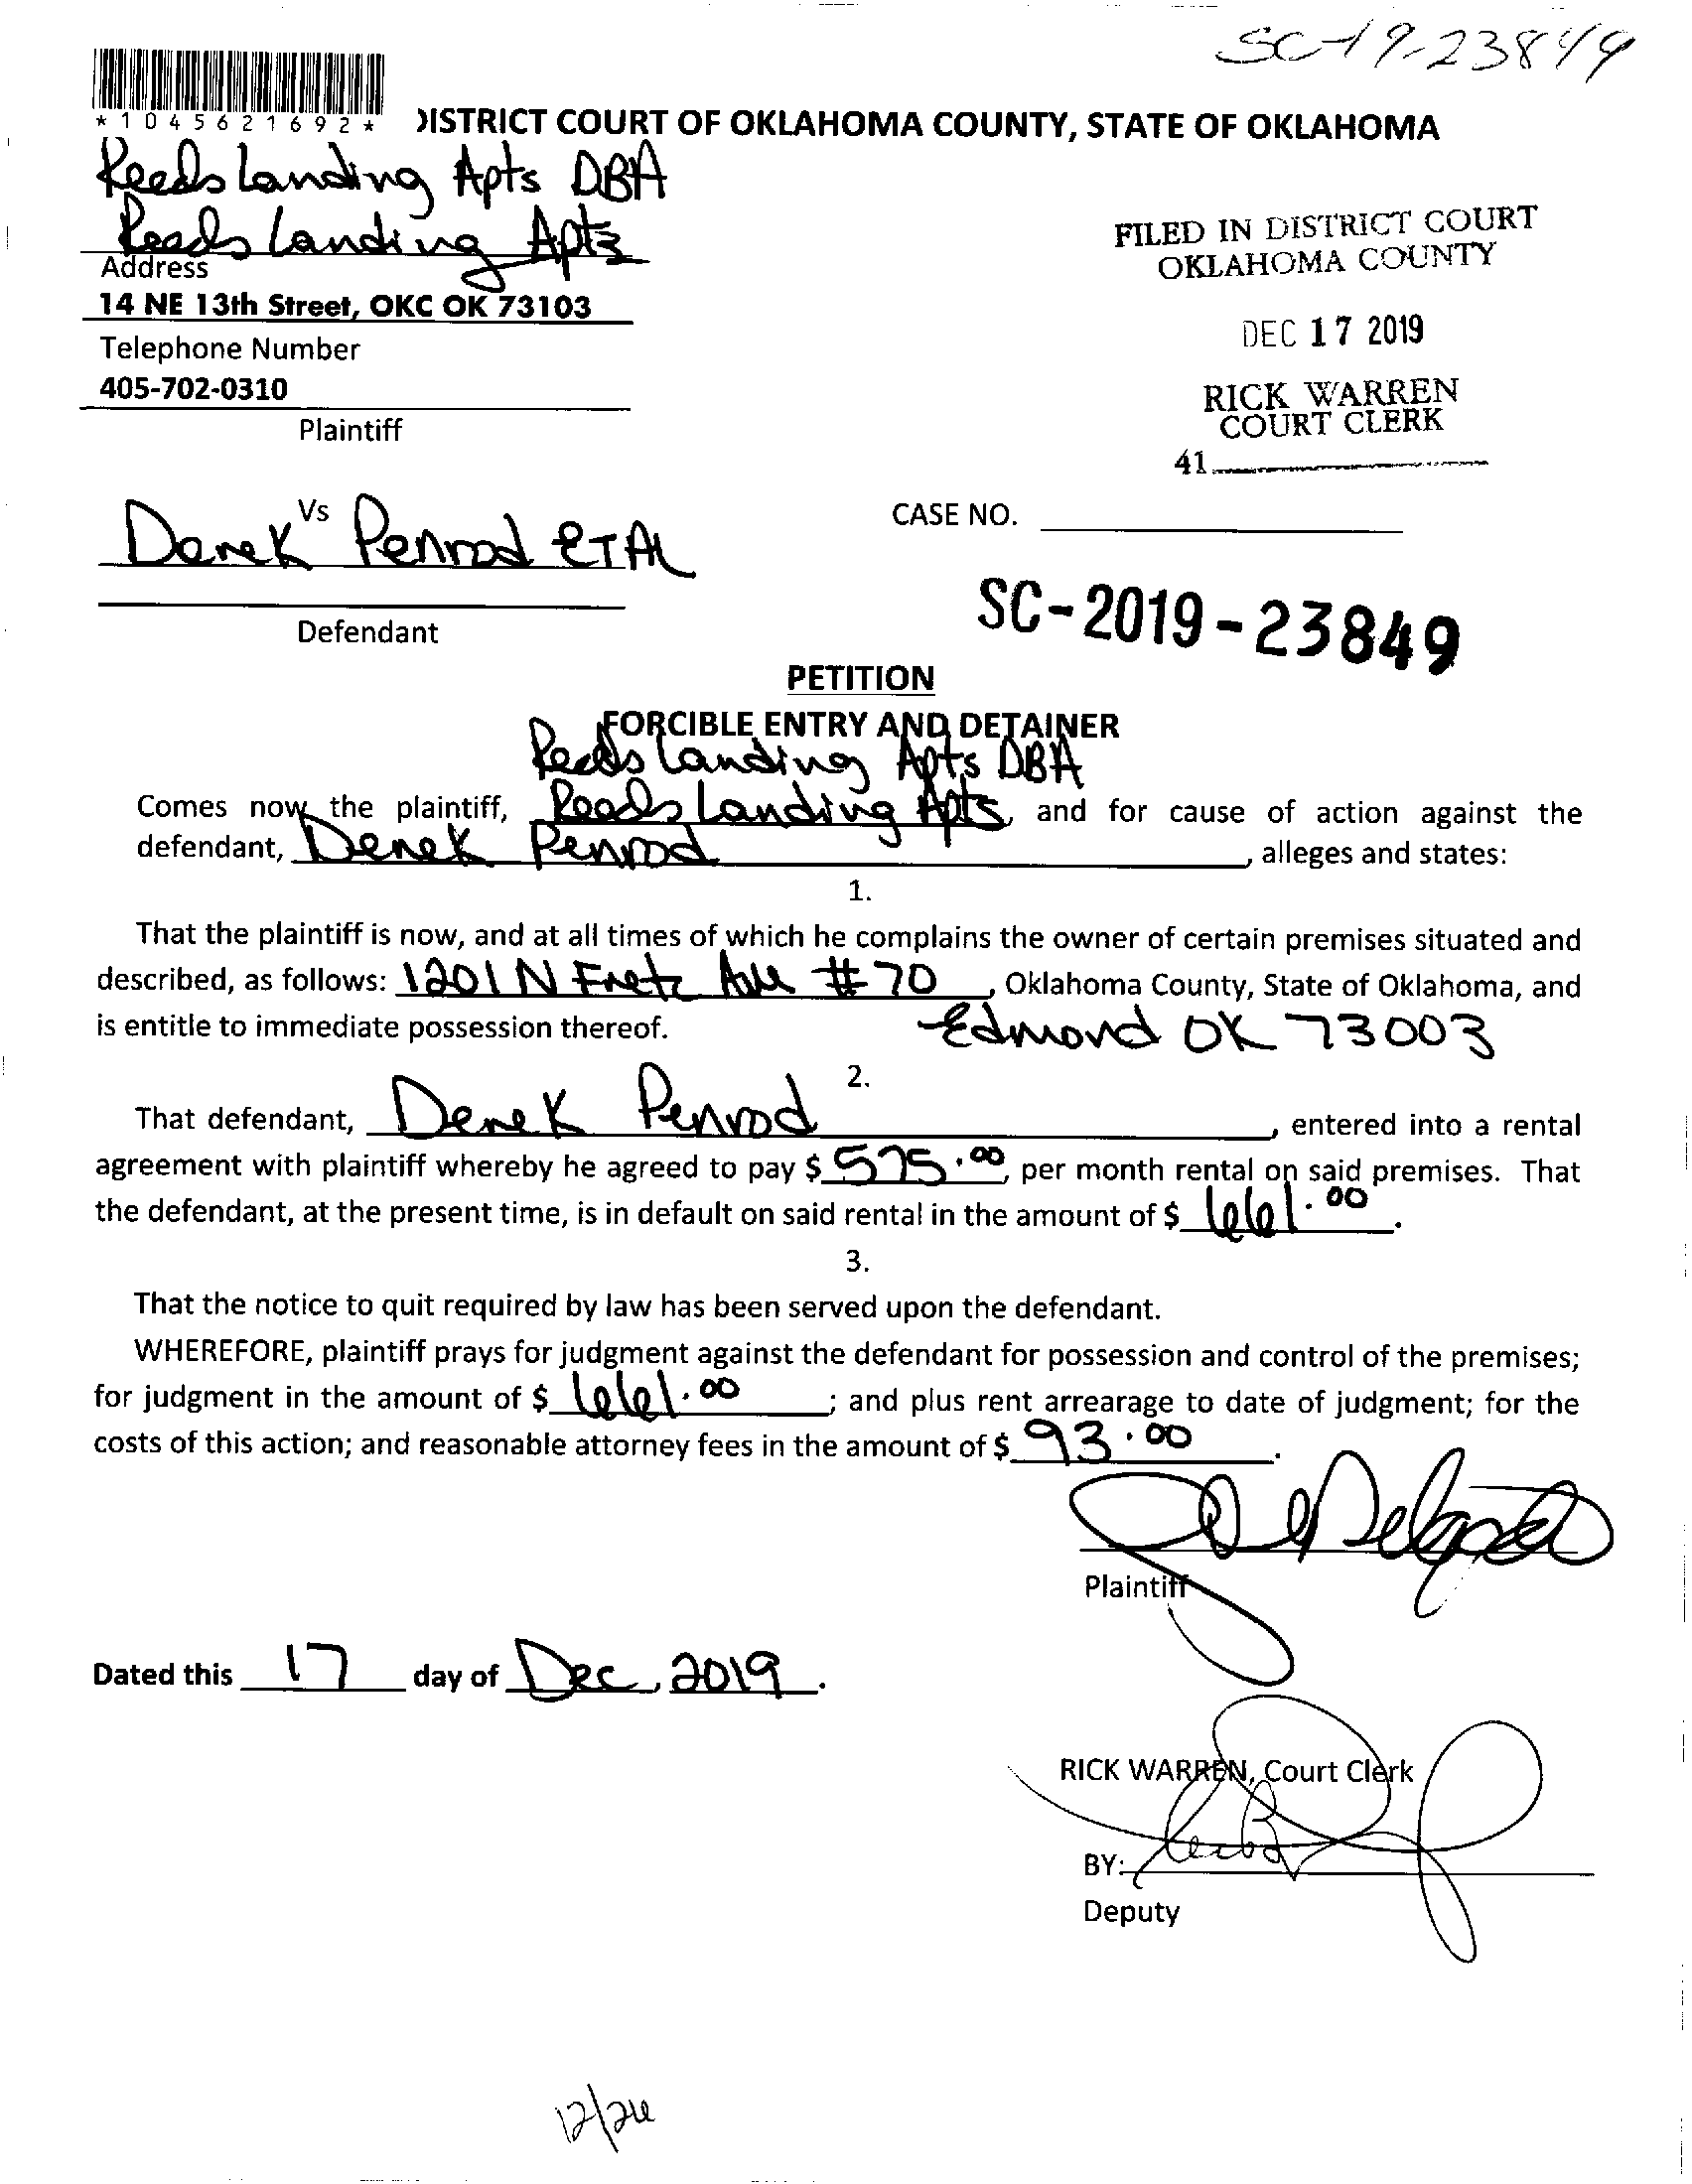 SC-19-23849
*1045621692*
DISTRICT COURT OF OKLAHOMA COUNTY, STATE OF OKLAHOMA
Reeds Landing Apts DBA
Reeds Landing Apts
Address
14 NE 13th Street, OKC OK 73103
Telephone Number
405-702-0310
Plaintiff
FILED IN DISTRICT COURT
OKLAHOMA COUNTY
DEC 17 2019
RICK WARREN
COURT CLERK
41
Vs
Derek Penrod ETAL
Defendant
CASE NO.
SC-2019-23849
PETITION
FORCIBLE ENTRY AND DETAINER
Reeds Landing Apts DBA
Comes now the plaintiff, Reeds Landing Apts, and for cause of action against the
defendant, Derek Penrod, alleges and states:
1.
That the plaintiff is now, and at all times of which he complains the owner of certain premises situated and
described, as follows: 1201 N Fretz Ave #70, Oklahoma County, State of Oklahoma, and
is entitle to immediate possession thereof. Edmond OK 73003
2.
That defendant, Derek Penrod, entered into a rental
agreement with plaintiff whereby he agreed to pay $ 575.00, per month rental on said premises. That
the defendant, at the present time, is in default on said rental in the amount of $ 661.00.
3.
That the notice to quit required by law has been served upon the defendant.
WHEREFORE, plaintiff prays for judgment against the defendant for possession and control of the premises;
for judgment in the amount of $ 661.00; and plus rent arrearage to date of judgment; for the
costs of this action; and reasonable attorney fees in the amount of $ 93.00.
Plaintiff
Dated this 17 day of Dec, 2019.
RICK WARREN, Court Clerk
BY:
Deputy